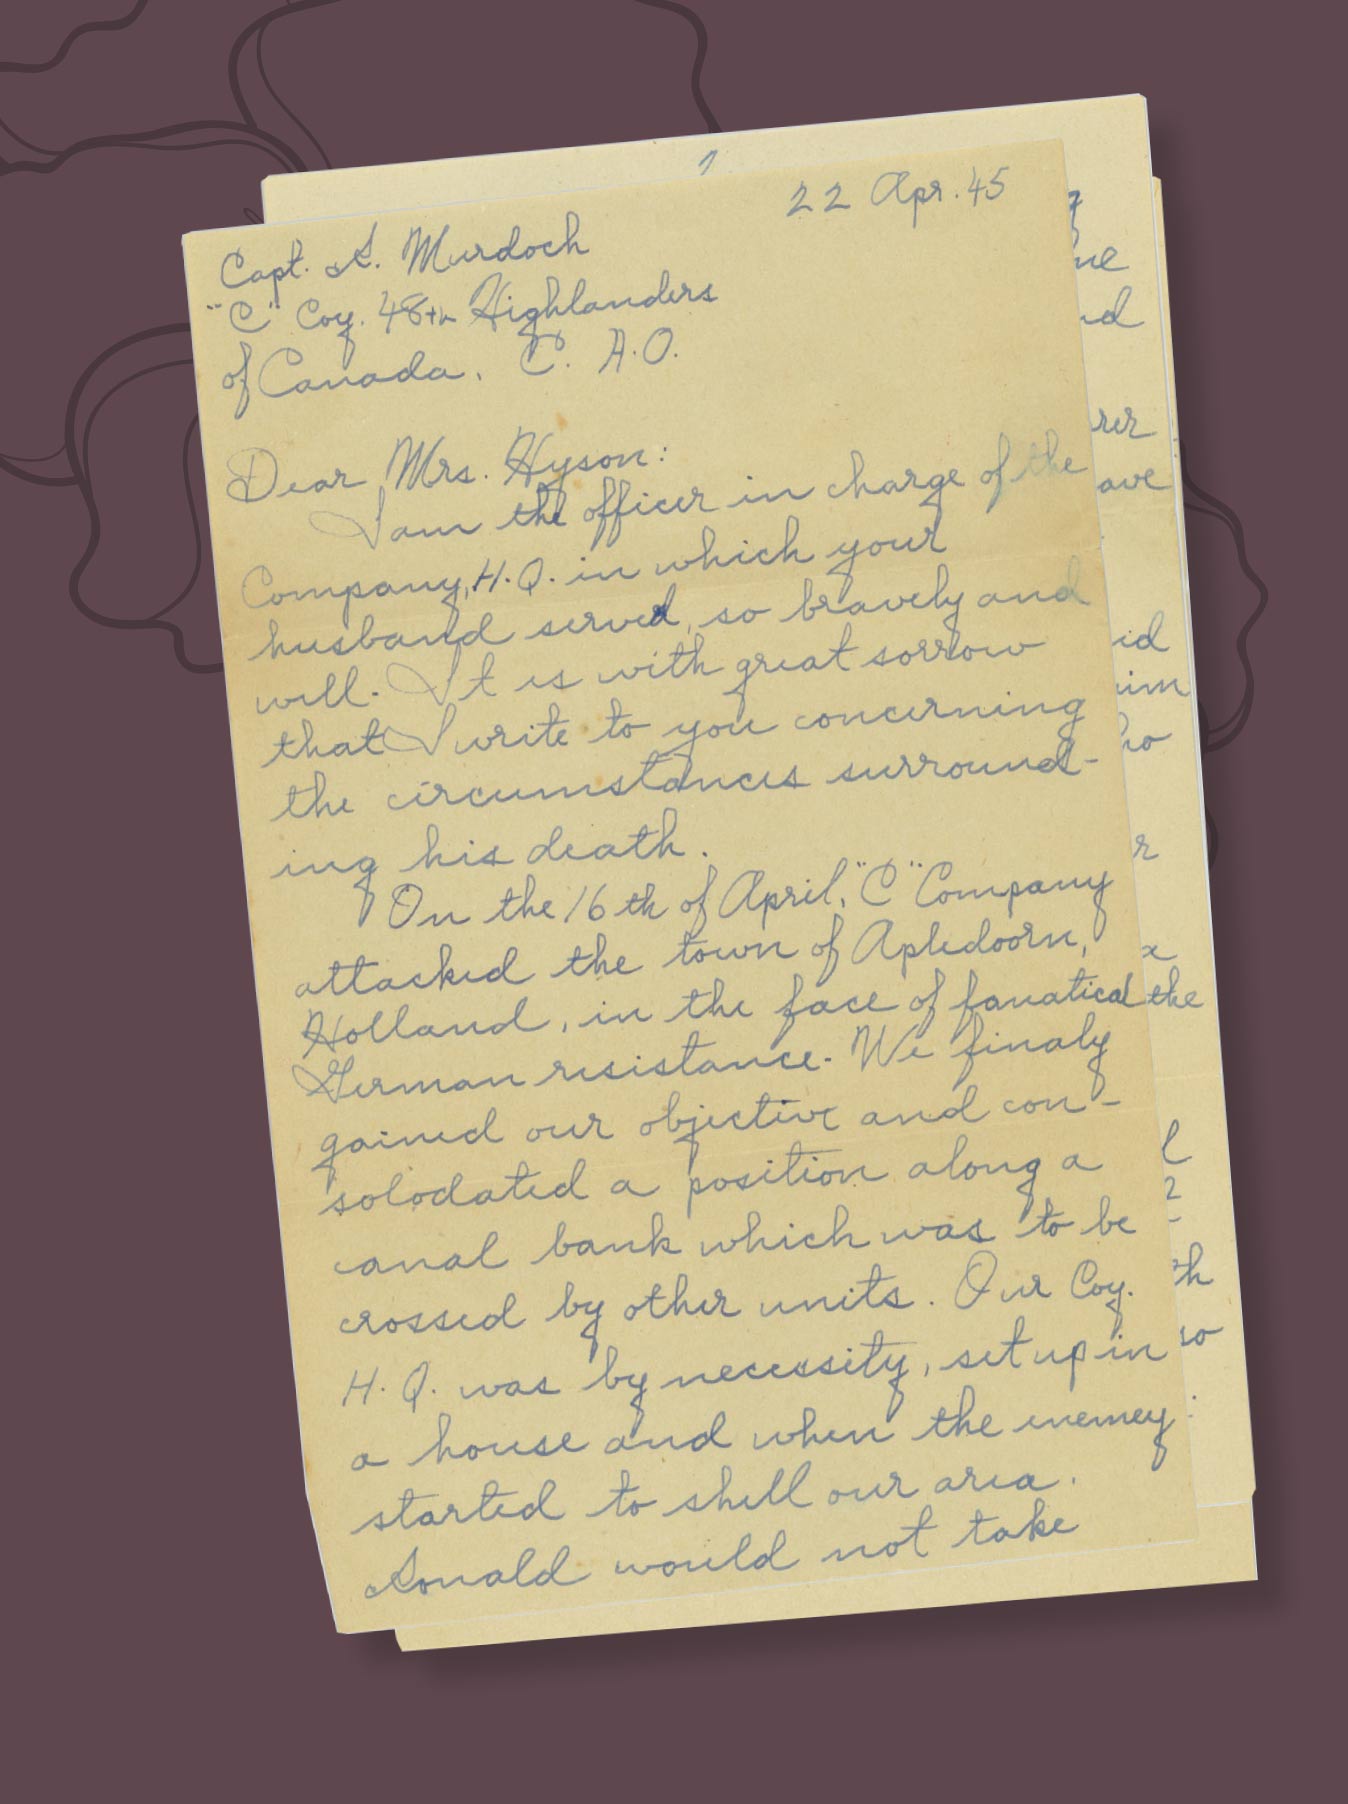 22 Apr. 45
Capt. Murdoch
"C" Coy. 48th Highlanders
of Canada. C. A.O.
Dear Mrs. Hyson:
I am the officer in charge of the
Company, H.Q. in which your
husband served, so bravely and
well. It is with great sorrow
that I write to you concerning
the circumstances surround-
ing his death.
On the 16th of April, "C" Company
attacked the town of Apledoorn,
Holland, in the face of fanatical
German resistance. We finaly
gained our objective and con-
solodated a position along a
canal bank which was to be
crossed by other units. Our Coy.
H.Q. was by necessity, set up in
a house and when the enemey
started to shell our area.
would not take
the